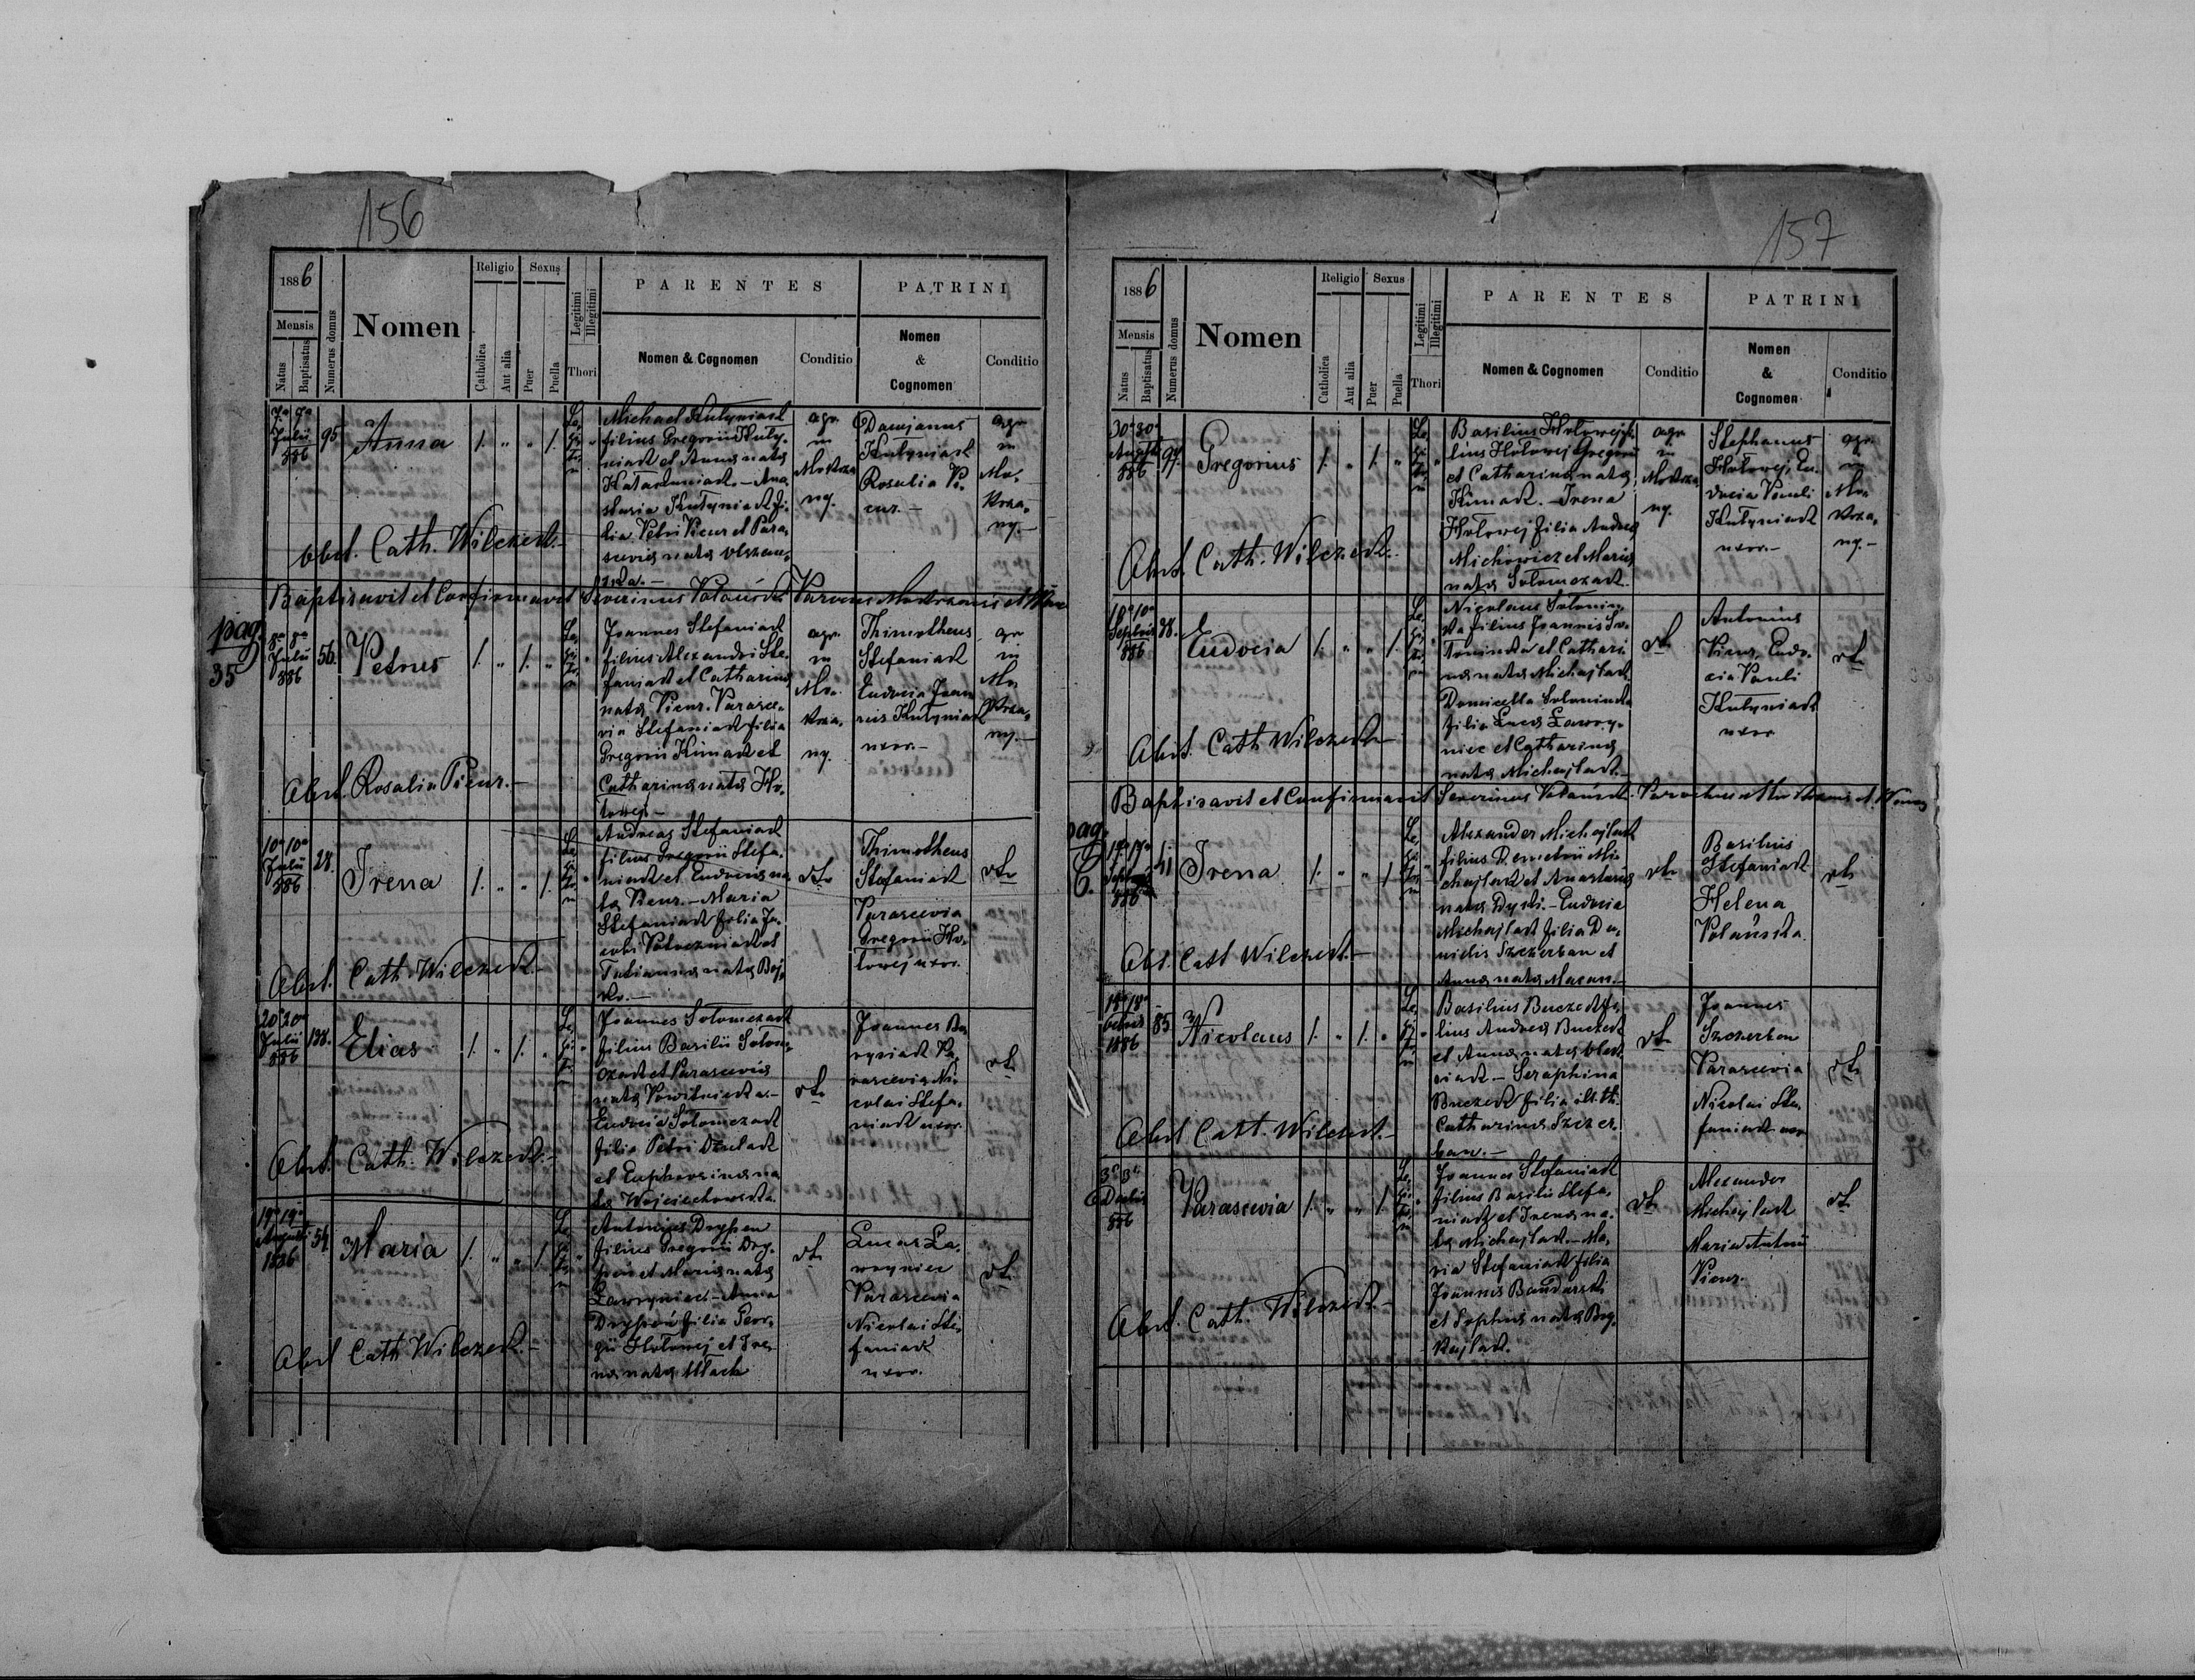 156
1886
Mensis
Natus
Baptisatus
Numerus domus
Nomen
Religio
Catholica
Aut alia
Sexus
Puer
Puella
Legitimi
Illegitimi
Thori
PARENTES
Nomen & Cognomen
Conditio
PATRINI
Nomen
&
Cognomen
Conditio
7a 7a
Julii
886
95
Anna
1. " " 1.
Michael Kutyniak
filius Gregorii Kuty-
niak et Anna nata
Anas-
tasia Kutyniak fi-
lia Petri Picur et Para-
scevia nata
agr.
in
Mo
ny.
Damjanus
Kutyniak
Rosalia Pi-
cur.-
agr.
in
Mo-
ny.-
Obst. Cath. Wilczek.-
Baptisavit et Confirmavit Severinus Parochus
pag.
35
8a 8a
Julii
886
56.
Petrus
1. " 1. "
Joannes Stefaniak
filius Alexandri Ste-
faniak et Catharina
nata Picur. Parasce-
via Stefaniak filia
Gregorii Kimak et
Catharina nata Ho-
lowej.-
agr.
in
Mo-
ny.
Thimotheus
Stefaniak
Eudocia Joan-
nis Kutyniak
uxor.-
agr
in
Mo-
ny.-
Obst. Rosalia Picur.-
10a 10a
Julii
886
28.
Irena
1. " " 1.
Andreas Stefaniak
filius Gregorii Stefa-
niak et Eudocia na-
ta Picur.-Maria
Stefaniak filia Ja-
cobi
Tatianna nata Boj-
ko.-
dto
Thimotheus
Stefaniak
Parascevia
Gregorii Ho-
lowej uxor.
dto
Obst. Cath. Wilczek.-
20a 20a
Julii
886
138.
Elias
1. " 1. "
Joannes Solomczak
filius Basilii Solom-
czak et Parascevia
nata
Eudocia Solomczak
filia Petri
et Euphrosina na-
ta Wojciechowska.
dto
Joannes
Pa-
rascevia Ni-
colai Stefa-
niak uxor.
dto
Obst. Cath. Wilczek.-
19a 19a
Augusti
1886
54
Maria
1. " " 1.
Antonius
filius Gregorii
et Maria nata
Lawryniec-Anna
filia Geor-
gii Holowej et Ire-
na nata
dto
Lucas La-
wryniec
Parascevia
Nicolai Ste-
faniak
uxor.
dto
Obst Cath Wilczek.-
157
1886
Mensis
Natus
Baptisatus
Numerus domus
Nomen
Religio
Catholica
Aut alia
Sexus
Puer
Puella
Legitimi
Illegitimi
Thori
PARENTES
Nomen & Cognomen
Conditio
PATRINI
Nomen
&
Cognomen
Conditio
30a 30a
Augusti
886
97.
Gregorius
1. " 1. "
Basilius Holowej fi-
lius Holowej Gregorii
et Catharina nata
Kimak.-Irena
Holowej filia Andrea
Michowicz et Maria
nata Solomczak.
agr
in
ny.
Stephanus
Holowej, Eu-
docia Pauli
Kutyniak
uxor.-
agr.
in
Mo-
ny.-
Obst. Cath. Wilczek.-
10a 10a
886
38.
Eudocia
1. " " 1.
Nicolaus Solonin-
ka filius Joannis So-
loninka et Cathari-
na nata Michajlak
Domicella Soloninka
filia Luca Lawry-
niec et Catharina
nata Michajlak.-
dto
Antonius
Picur, Eudo-
cia Pauli
Kutyniak
uxor
dto
Obst. Cath Wilczek-
Baptisavit et Confirmavit Severinus Parochus
pag.
886
41
Irena
1. " " 1
Alexander Michajlak
filius Demetrii Mi-
chajlak et Anastasia
nata Eudocia
Michajlak filia Da-
nielis Szczerban et
Anna nata
dto
Basilius
Stefaniak
Helena
dto
Obst. Cath Wilczek.-
1886
85.
Nicolaus
1. " 1. "
Basilius Buczek fi-
lius Andrea Buczek
et Anna nata
Seraphina
Buczek filia illth.
Catharina Szczer-
ban.-
dto
Joannes
Szczerban
Parascevia
Nicolai Ste-
faniak uxor
dto
Obst Cath. Wilczek.-
3a 3a
886
Parascevia
1. " " 1.
Joannes Stefaniak
filius Basilii Stefa-
niak et Irena na-
ta Michajlak.-Ma-
ria Stefaniak filia
Joannis
et Sophia nata
dto
Alexander
Michajlak
Maria Antonii
Picur.
dto
Obst. Cath. Wilczek-